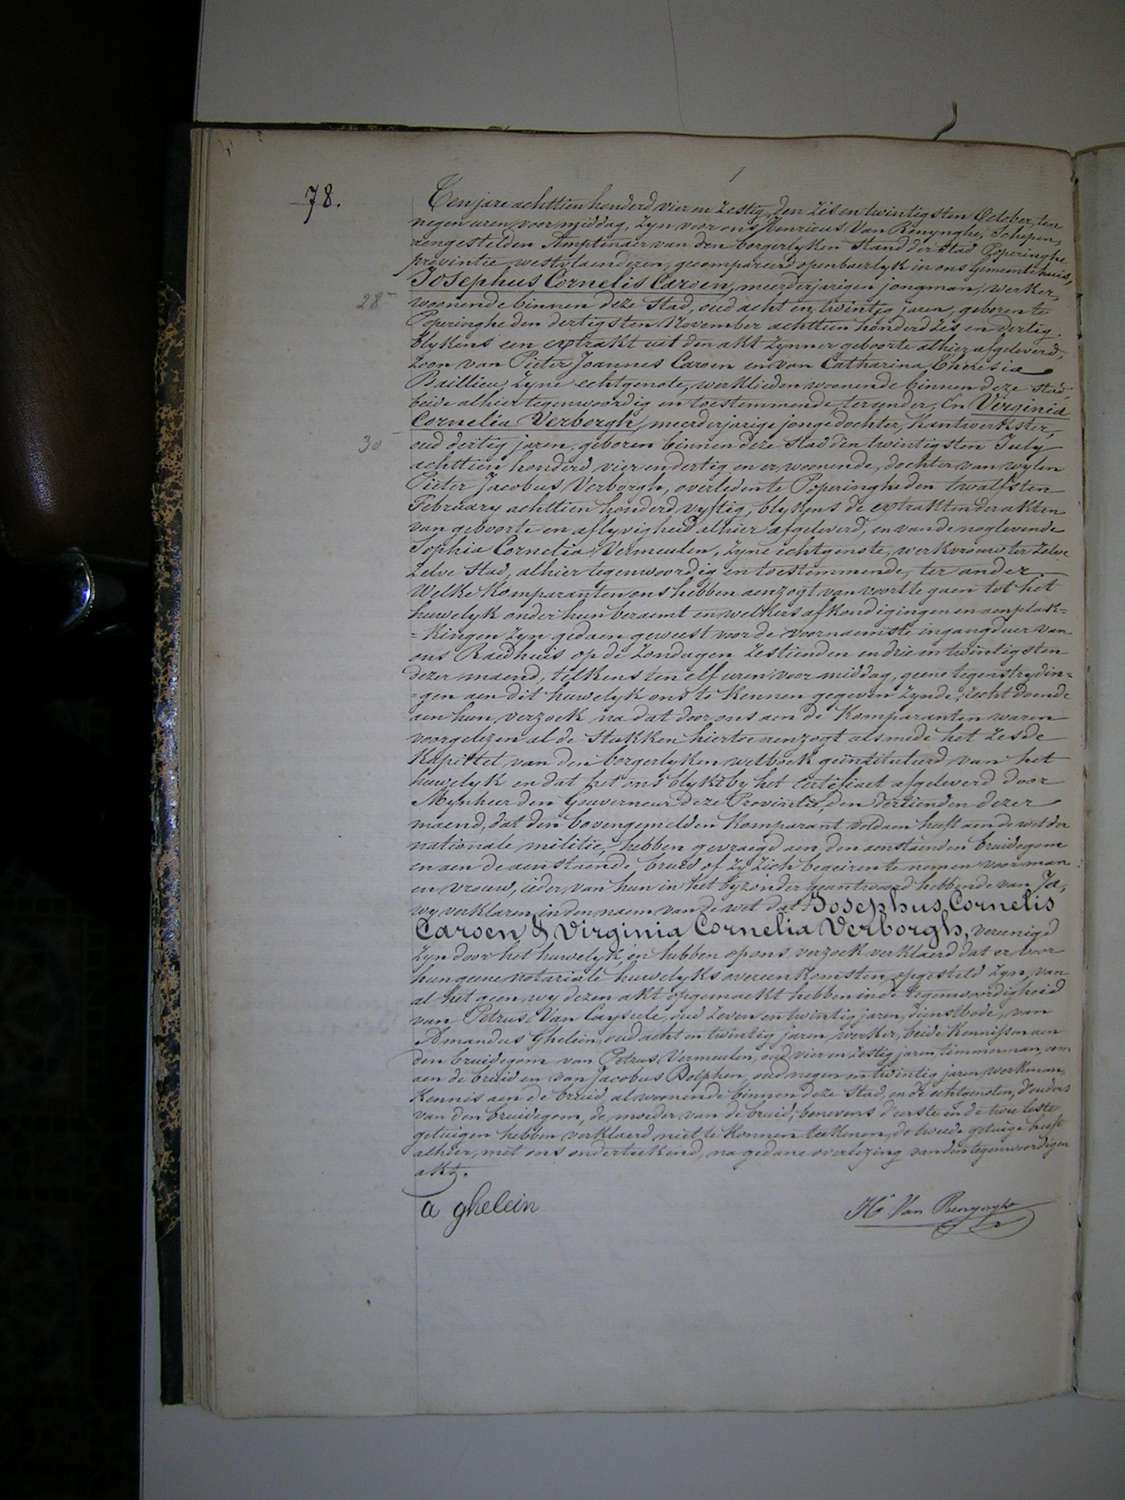 78.
Ten jare achttien honderd vier en zestig, den zes en twintigsten October, ten
negen uren voormiddag, zyn voor ons Henricus Van Renynghe, Schepen,
aengestelden Amptenaer van den borgerlyken stand der stad Poperinghe
provintie westvlaenderen, gecompareerd openbaerlyk in ons Gemeentehuis,
Josephus Cornelis Caroen, meerderjarigen jongman, werker,
28
woonende binnen deze stad, oud acht en twintig jaren, geboren te
Poperinghe den dertigsten November achttien honderd zes en dertig
blykens een extrakt uit den akt zynner geboorte alhier afgeleverd,
zoon van Pieter Joannes Caroen en van Catharina Theresia
Baillieu zyne echtgenote, werklieden woonende binnen deze stad
beide alhier tegenwoordig en toestemmende ter eender; En Virginia
Cornelia Verborgh, meerderjarige jonge dochter, Kantwerkster,
30
oud dertig jaren, geboren binnen deze stad den twintigsten July
achttien honderd vier en dertig en er woonende, dochter van wylen
Pieter Jacobus Verborgh, overleden te Poperinghe den twalfsten
February achttien honderd vyftig, blykens de extrakten der akten
van geboorte en aflyvigheid alhier afgeleverd, en van de noglevende
Sophia Cornelia Vermeulen, zyne echtgenote, werkvrouw ter zelve
zelve stad, alhier tegenwoordig en toestemmende, ter ander
Welke Komparanten ons hebben aenzogt van voort te gaen tot het
huwelyk onder hun beraemt en welkers afkondigingen en aenplak-
-kingen zyn gedaen geweest voor de voornaemste ingangduer van
ons Raedhuis op de zondagen zestienden en drie en twintigsten
dezer maend, telkens ten elf uren voormiddag, geene tegenstrydin-
-gen aen dit huwelyk ons te kennen gegeven zynde, recht doende
aen hun verzoek na dat door ons aen de Komparanten waren
voorgelezen al de stukken hiertoe aenzogt alsmede het zesde
Kapittel van den borgerlyken wetboek geïntituleerd van het
huwelyk en dat het ons blykt by het certificaet afgeleverd door
Mynheer den Gouverneur dezer Provintie, den dertienden dezer
maend, dat den bovengemelden Komparant voldaen heeft aen de wet der
nationale militie, hebben gevraegd aen den aenstaenden bruidegom
en aen de aenstaende bruid of zy zich begeiren te nemen voor man
en vrouw, ieder van hun in het byzonder geantwoord hebbende van Ja,
wy verklaren in den naem van de wet dat Josephus Cornelis
Caroen & Virginia Cornelia Verborgh, vereenigd
zyn door het huwelyk, en hebben op ons verzoek verklaerd dat er voor
hun geene notariale huwelyks overeenkomsten opgesteld zyn, van
al het geen wy dezen akt opgemaekt hebben in de tegenwoordigheid
van Petrus Van Cayseele, oud zeven en twintig jaren, dienstbode, van
Amandus Ghelein, oud acht en twintig jaren, werker, beide Kennissen aen
den bruidegom van Petrus Vermeulen, oud vier en zestig jaren timmerman, oom
aen de bruid en van Jacobus Dolphen, oud negen en twintig jaren werkman,
Kennis aen de bruid, al woonende binnen deze stad, en de echtgenoten, d'ouders
van den bruidegom, de moeder van de bruid, benevens d'eerste en de twee leste
getuigen hebben verklaerd niet te konnen teekenen, de tweede getuige heeft
alhier, met ons onderteekend, na gedane overlezing van den tegenwoordigen
akt.
a ghelein
Hri Van Renynghe